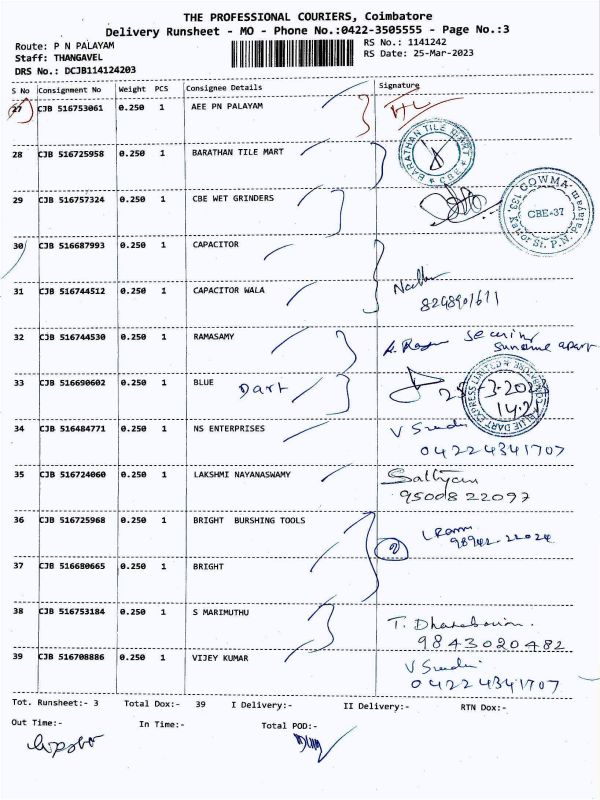 THE PROFESSIONAL COURIERS, Coimbatore
Delivery Runsheet - MO - Phone No.:0422-3505555 - Page No.:3
Route: P N PALAYAM
RS No.: 1141242
Staff: THANGAVEL
RS Date: 25-Mar-2023
DRS No.: DCJB114124203
S No Consignment No Weight PCS Consignee Details Signature
27 CJB 516753061 0.250 1 AEE PN PALAYAM
28 CJB 516725958 0.250 1 BARATHAN TILE MART
BARATHAN TILE MART CBE
29 CJB 516757324 0.250 1 CBE WET GRINDERS
GOWMA
CBE-37
30 CJB 516687993 0.250 1 CAPACITOR
31 CJB 516744512 0.250 1 CAPACITOR WALA
8248901611
32 CJB 516744530 0.250 1 RAMASAMY
33 CJB 516690602 0.250 1 BLUE Dart
BLUE DART EXPRESS LIMITED
34 CJB 516484771 0.250 1 NS ENTERPRISES
04224341707
35 CJB 516724060 0.250 1 LAKSHMI NAYANASWAMY
Sathyan
9500822097
36 CJB 516725968 0.250 1 BRIGHT BURSHING TOOLS
98942-22024
37 CJB 516680665 0.250 1 BRIGHT
38 CJB 516753184 0.250 1 S MARIMUTHU
9843020482
39 CJB 516708886 0.250 1 VIJEY KUMAR
04224341707
Tot. Runsheet:- 3 Total Dox:- 39 I Delivery:- II Delivery:- RTN Dox:-
Out Time:- In Time:- Total POD:-